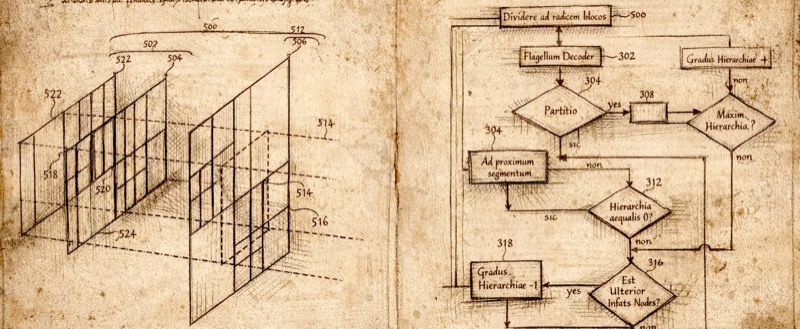 500
512
502
506
522
504
522
514
518
520
514
516
524
Dividere ad radcem blocos
500
Flagellum Decoder
302
Gradus Hierarchiae +
304
non
Partitio
yes
308
Maxim.
Hierarchia,?
sic
304
non
Ad proximum
segmentum
non
312
Hierarchia
aequalis 0?
sic
non
318
316
Gradus
Hierarchiae -1
yes
Est
Ulterior
Infats Nodes?
non